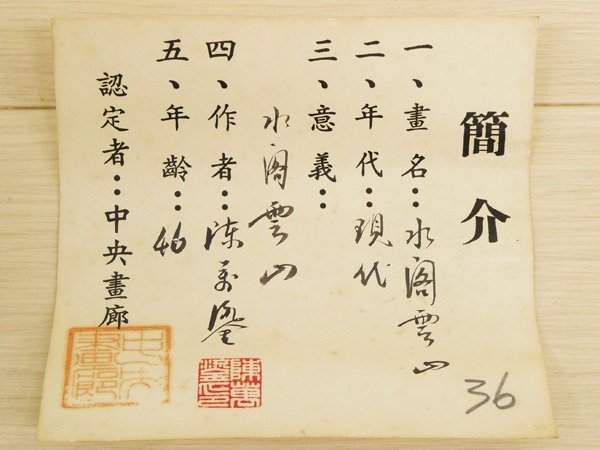 簡介
一、畫名：水閣雲山
二、年代：現代
三、意義：
水閣雲山
四、作者：陳
五、年齡：46
認定者：中央畫廊
中央畫廊
陳萬
36